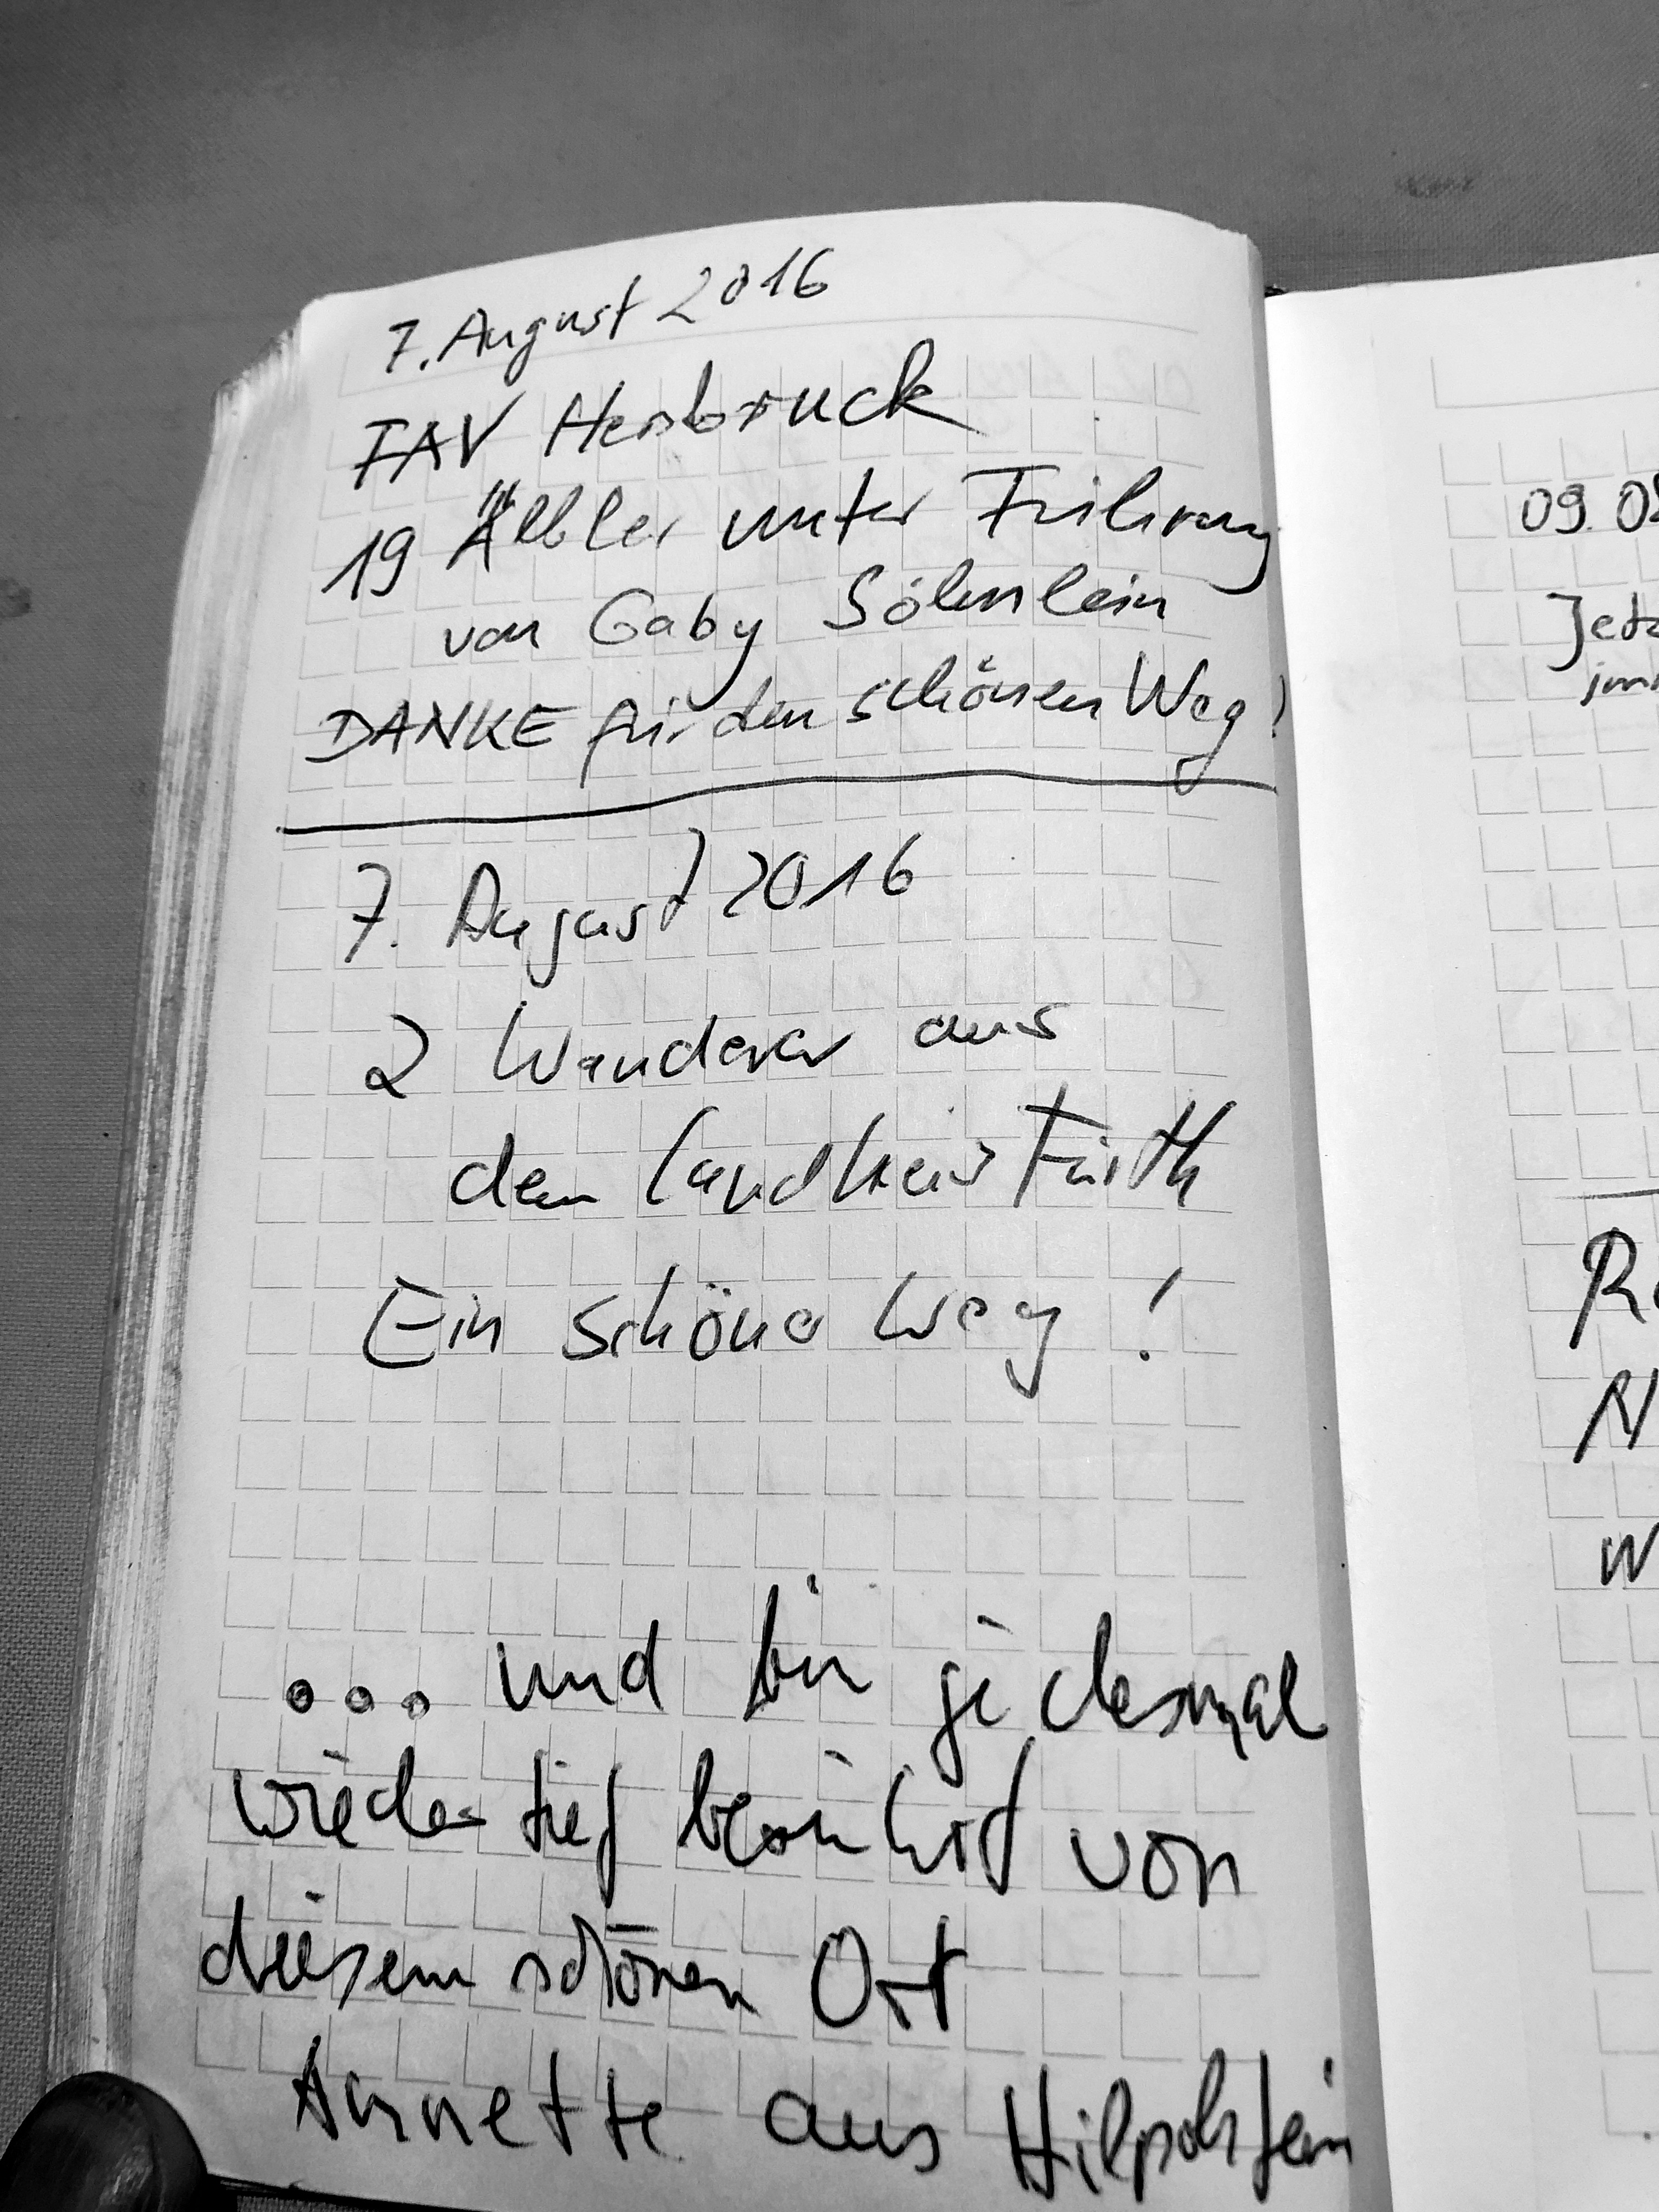 7. August 2016
FAV Hersbruck
19 Älbler unter Führung
von Gaby Söhnlein
DANKE für den schönen Weg!
7. August 2016
2 Wanderer aus
dem Landkreis Fürth
Ein schöner Weg !
... und bin jedesmal
wieder tief berührt von
diesem schönen Ort
Annette aus Hilpolstein
09. 08
Jetz